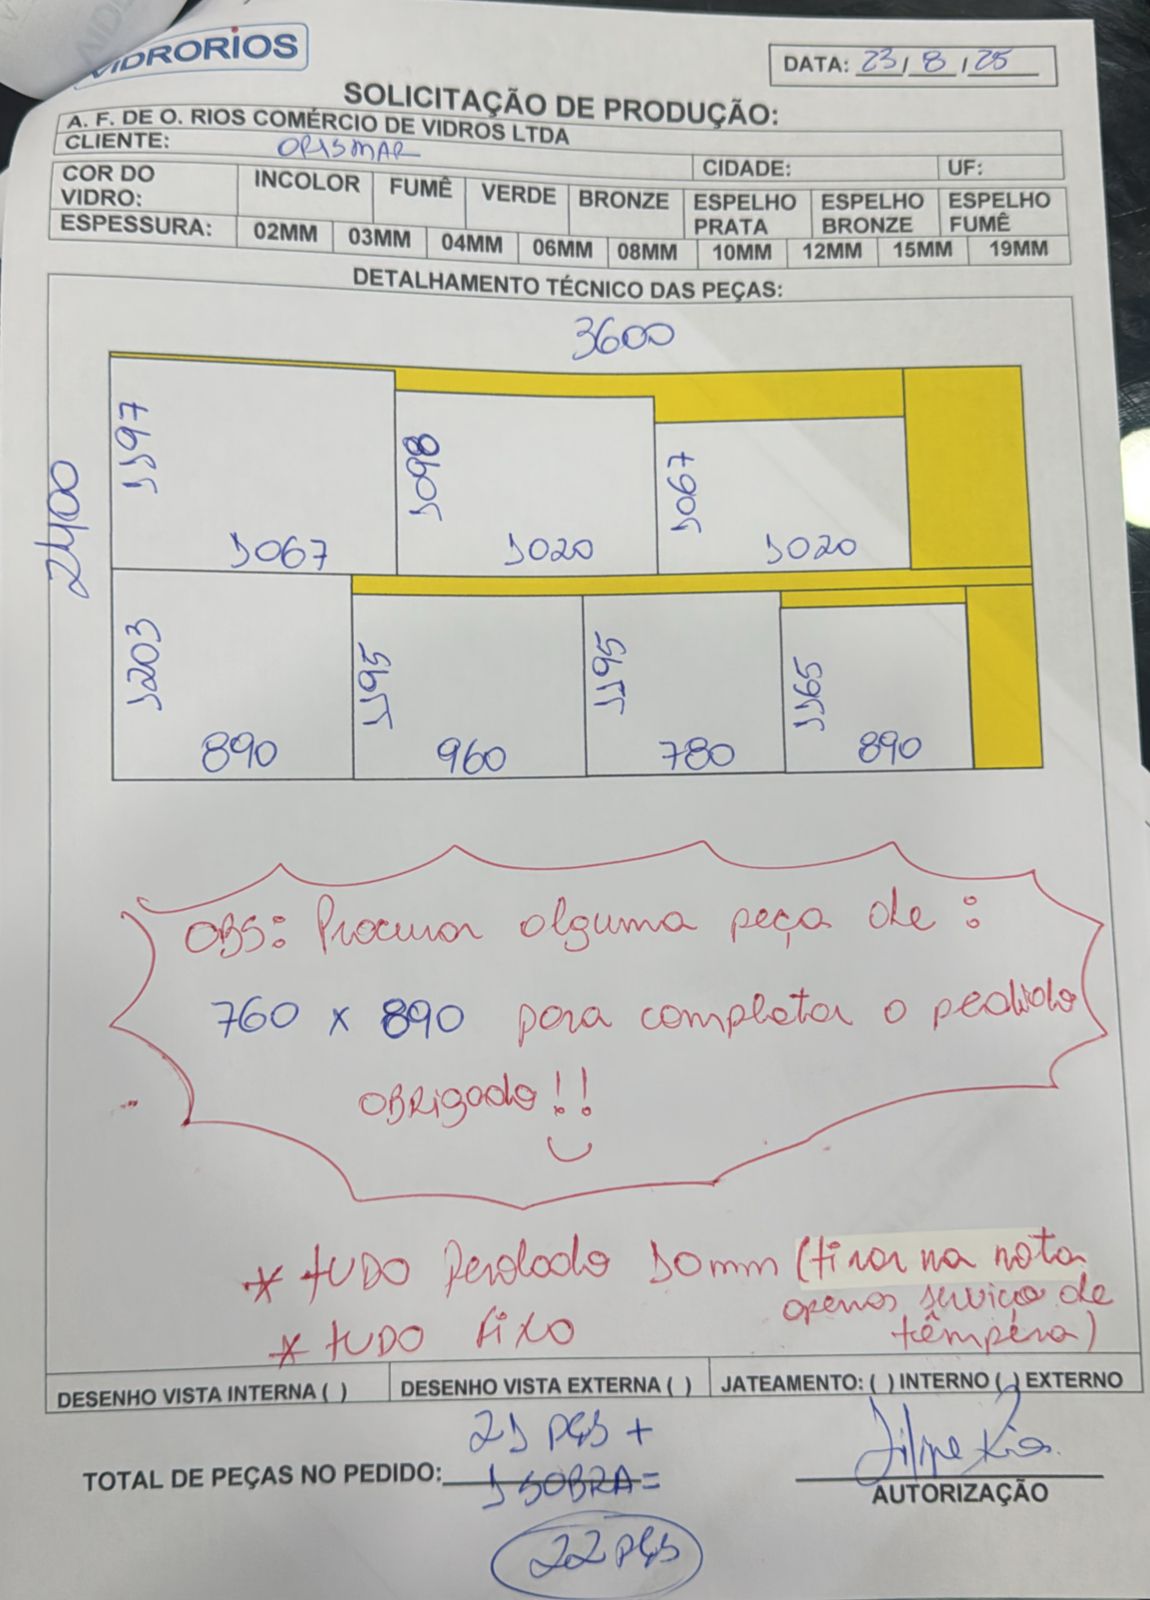 VIDRORIOS
DATA: 23/8/25
SOLICITAÇÃO DE PRODUÇÃO:
A. F. DE O. RIOS COMÉRCIO DE VIDROS LTDA
CLIENTE: ORISMAR CIDADE: UF:
COR DO VIDRO: INCOLOR FUMÊ VERDE BRONZE ESPELHO PRATA ESPELHO BRONZE ESPELHO FUMÊ
ESPESSURA: 02MM 03MM 04MM 06MM 08MM 10MM 12MM 15MM 19MM
DETALHAMENTO TÉCNICO DAS PEÇAS:
3600
2400
1197
1067
1098
1020
1067
1020
1203
890
1195
960
1195
780
1165
890
OBS: Procurar alguma peça de :
760 x 890 para completar o pedido
OBRIGADO!!
* TUDO Perolado 10mm (tirar na nota
apenas serviço de
têmpera)
* TUDO FIXO
DESENHO VISTA INTERNA ( ) DESENHO VISTA EXTERNA ( ) JATEAMENTO: ( ) INTERNO ( ) EXTERNO
21 PÇS +
TOTAL DE PEÇAS NO PEDIDO: 1 SOBRA =
22 PÇS
Filipe Rios
AUTORIZAÇÃO